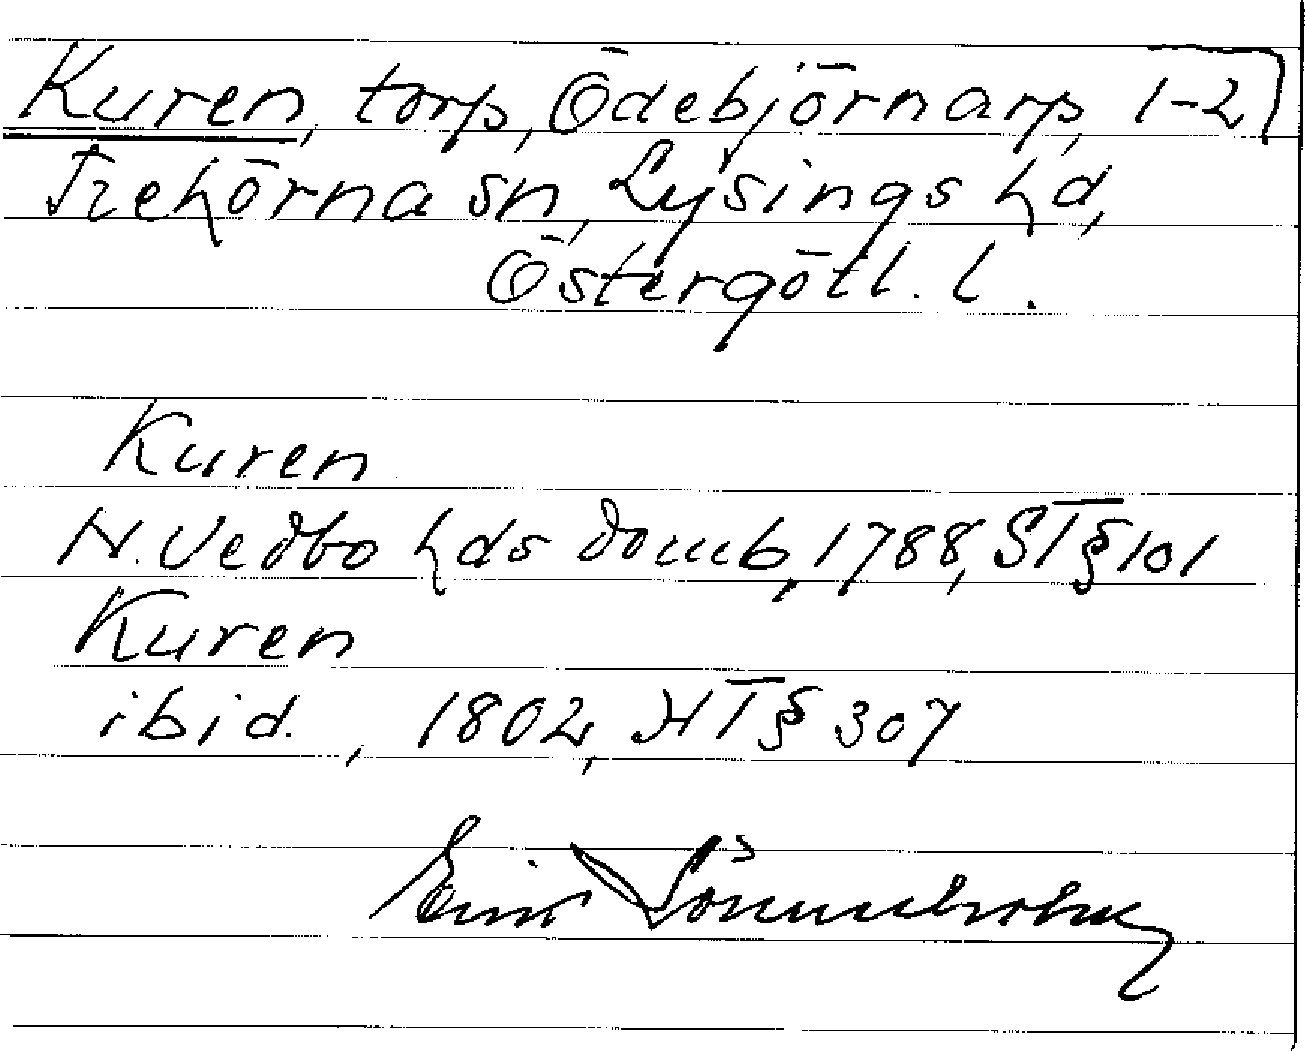 Kuren, torp, Ödebjörnarp, 1-2
Trehörna sn, Lysings hd,
Östergötl. l.
Kuren
N. Vedbo hds domb, 1788, ST § 101
Kuren
ibid., 1802, HT § 307